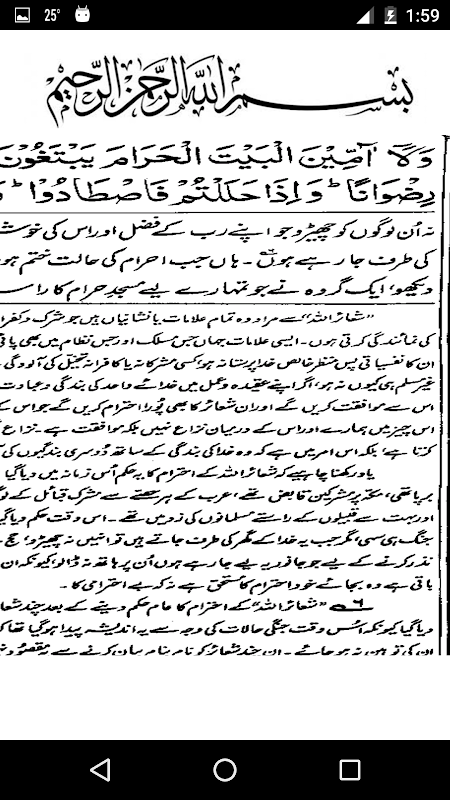 25° 1:59
بسم الله الرحمن الرحيم
وَلَآ آمِّيْنَ الْبَيْتَ الْحَرَامَ يَبْتَغُوْنَ
رِضْوَانًا ؕ وَاِذَا حَلَلْتُمْ فَاصْطَادُوْا ؕ
نہ اُن لوگوں کو چھیڑو جو اپنے رب کے فضل اور اس کی خوش
کی طرف جا رہے ہوں۔ ہاں جب احرام کی حالت ختم ہو
دیکھو، ایک گروہ نے جو تمہارے لیے مسجدِ حرام کا راس
"شعائر اللہ" سے مراد وہ تمام علامات یا نشانیاں ہیں جو شرک و کفر
کی نمائندگی کرتی ہوں۔ ایسی علامات جہاں جس مسلک اور جس نظام میں بھی پا
ان کا نفسیاتی پس منظر خالص خدا پرستانہ ہو، کسی مشرکانہ یا کافرانہ تخیل کی آلودگی
غیر مسلم ہی کیوں نہ ہو، اگر اپنے عقیدہ و عمل میں خدائے واحد کی بندگی و عبادت
اس سے موافقت کریں گے اور ان شعائر کا بھی پورا احترام کریں گے جو اس کے
اس چیز میں ہمارے اور اس کے درمیان نزاع نہیں بلکہ موافقت ہے۔ نزاع
کرتا ہے، بلکہ اس امر میں ہے کہ وہ خدا کی بندگی کے ساتھ دُوسری بندگیوں کی
یاد رکھنا چاہیے کہ شعائر اللہ کے احترام کا یہ حکم اُس زمانہ میں دیا گیا
برپا تھی، مکہ پر مشرکین قابض تھے، عرب کے ہر حصے سے مشرک قبائل کے لو
اور بہت سے قبیلوں کے راستے مسلمانوں کی زد میں تھے۔ اس وقت حکم دیا گیا
جنگ ہی سہی، مگر جب یہ خدا کے گھر کی طرف جاتے ہیں تو انہیں نہ چھیڑو، حج
نذر کرنے کے لیے جو جانور یہ لیے جا رہے ہوں اُن پر ہاتھ نہ ڈالو، کیونکہ ان
باقی ہے وہ بجائے خود احترام کا مستحق ہے نہ کہ بے احترامی کا۔
۶ "شعائر اللہ" کے احترام کا عام حکم دینے کے بعد چند شعا
دیا گیا کیونکہ اُس وقت جنگی حالات کی وجہ سے یہ اندیشہ پیدا ہو گیا تھا ک
ان کی توہین نہ ہو جائے۔ ان چند شعائر کو نام بنام بیان کرنے سے یہ مقصود